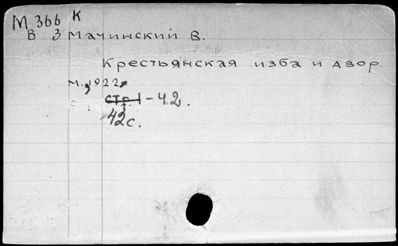 М 366 К
В 3 Мачинский В.
Крестьянская изба и двор
М., 1922
стр. 1-42.
42 с.